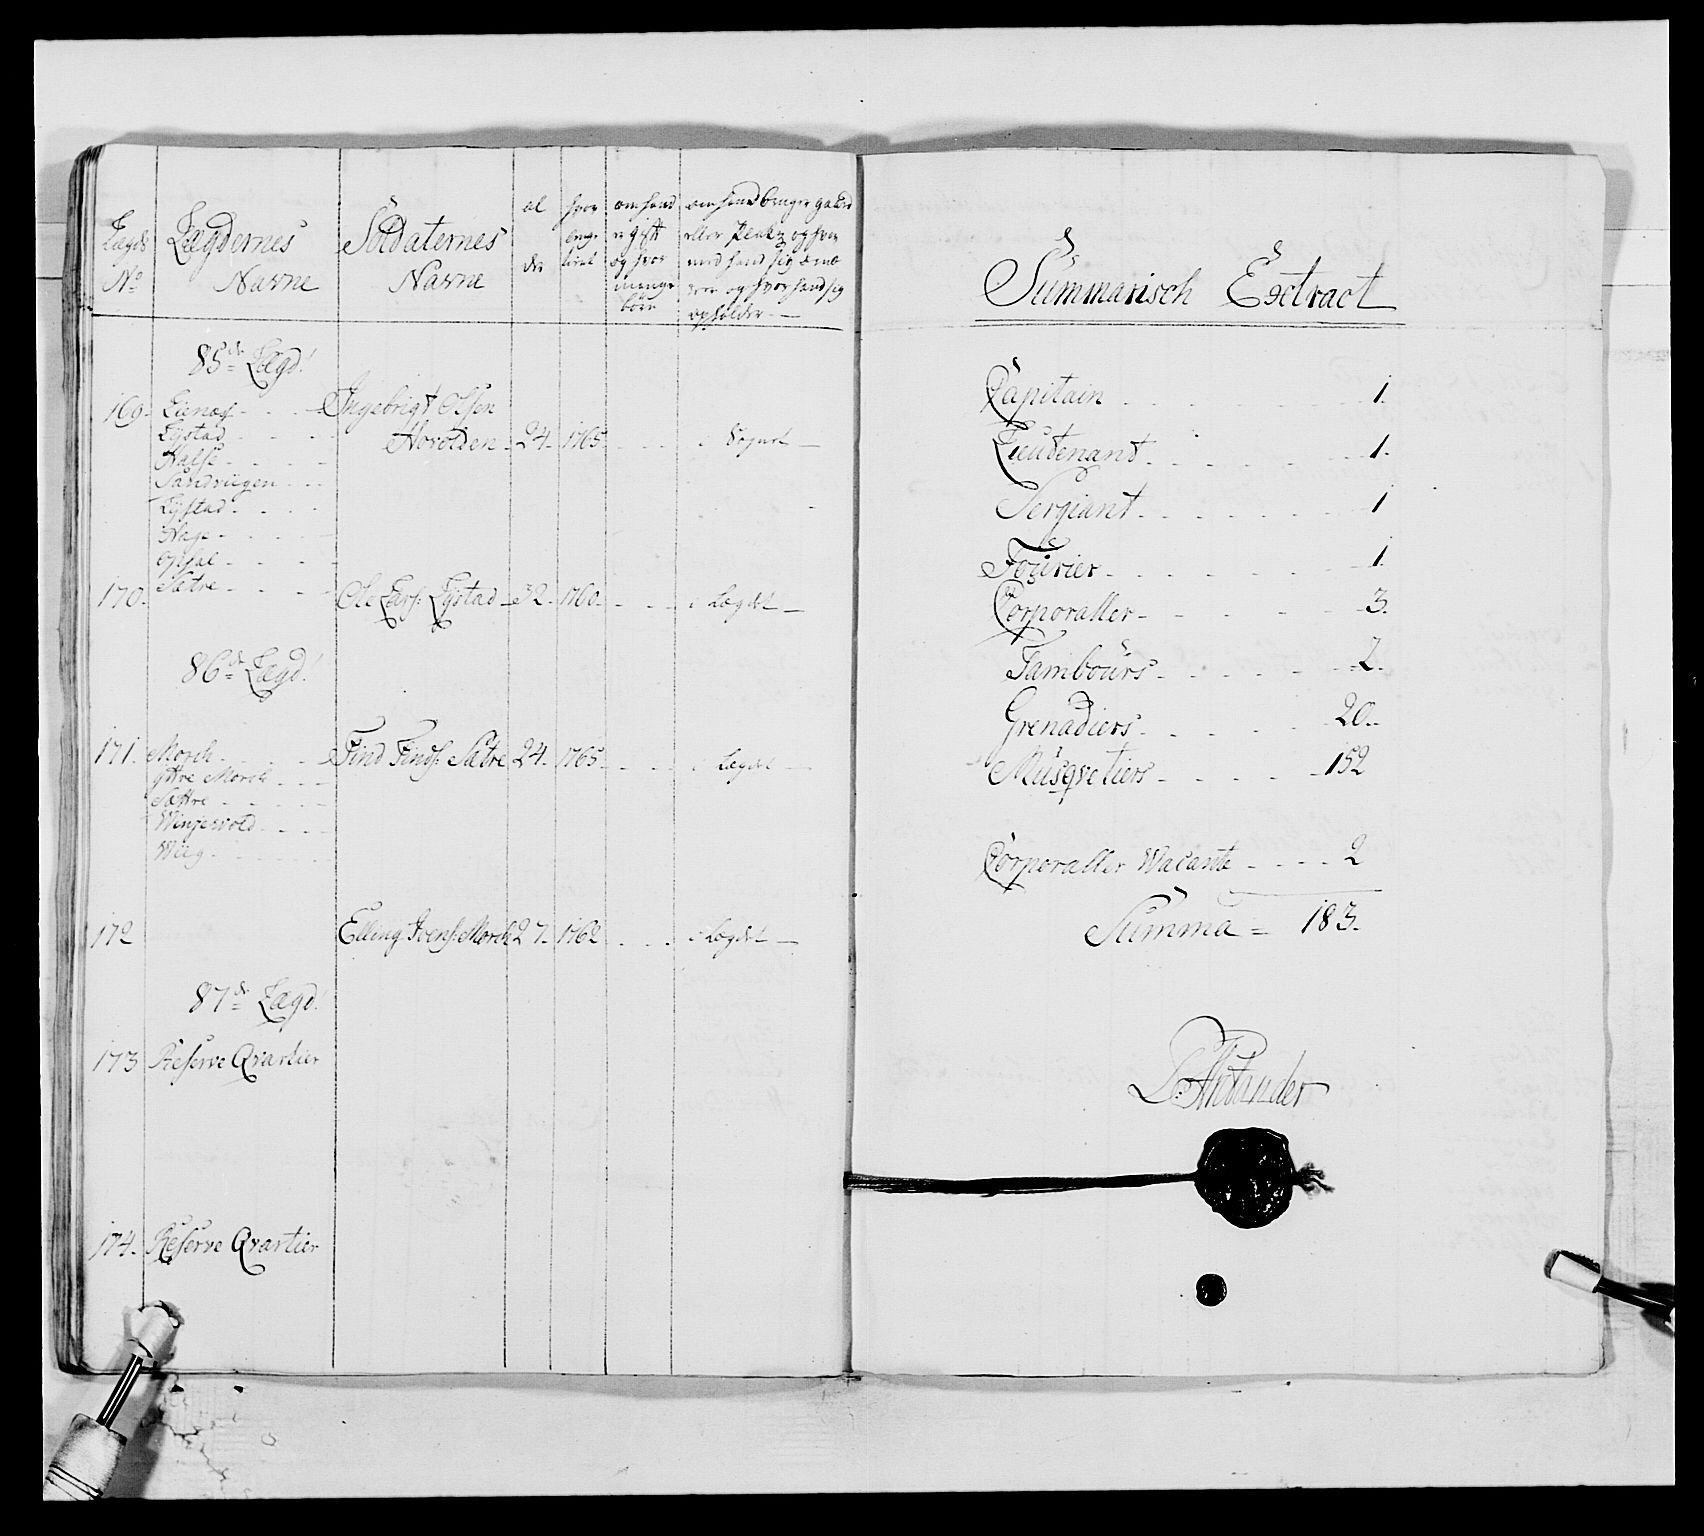 Lægds No
Lægdernes Navne
Soldaternes Navne
al der
hvor lenge tient
om hand er gift og hvor mange børn
om hand bruger gaard eller Pladtz og hvor med hand sig ernærer og hvor hand sig opholder
85de Lægd
169. Lienæs Ingebrigt Olsen
Lystad Hovolden 24. 1765 i Sognet
Halse
Sandviigen
Lystad
Hage
Opsal
Sætre
170. Ole Lars: Lystad 32. 1760. i Lægdet
86de Lægd
171. Morch Find Finds: Sætre 24. 1765. i Lægdet
yttre Morch
Sættre
Winjevold
Wiig
172 Elling Ivers: Morch 27. 1762 i Lægdet
87de Lægd
173 Reserve Qvartier
174. Reserve Qvartier
Summarisch Extract
Capitain 1.
Lieutenant 1.
Sergiant 1
Fourier 1
Corporaller 3.
Tambours 2.
Grenadiers 20.
Musqvetiers 152
Corporaller Wacante 2
Summa = 183.